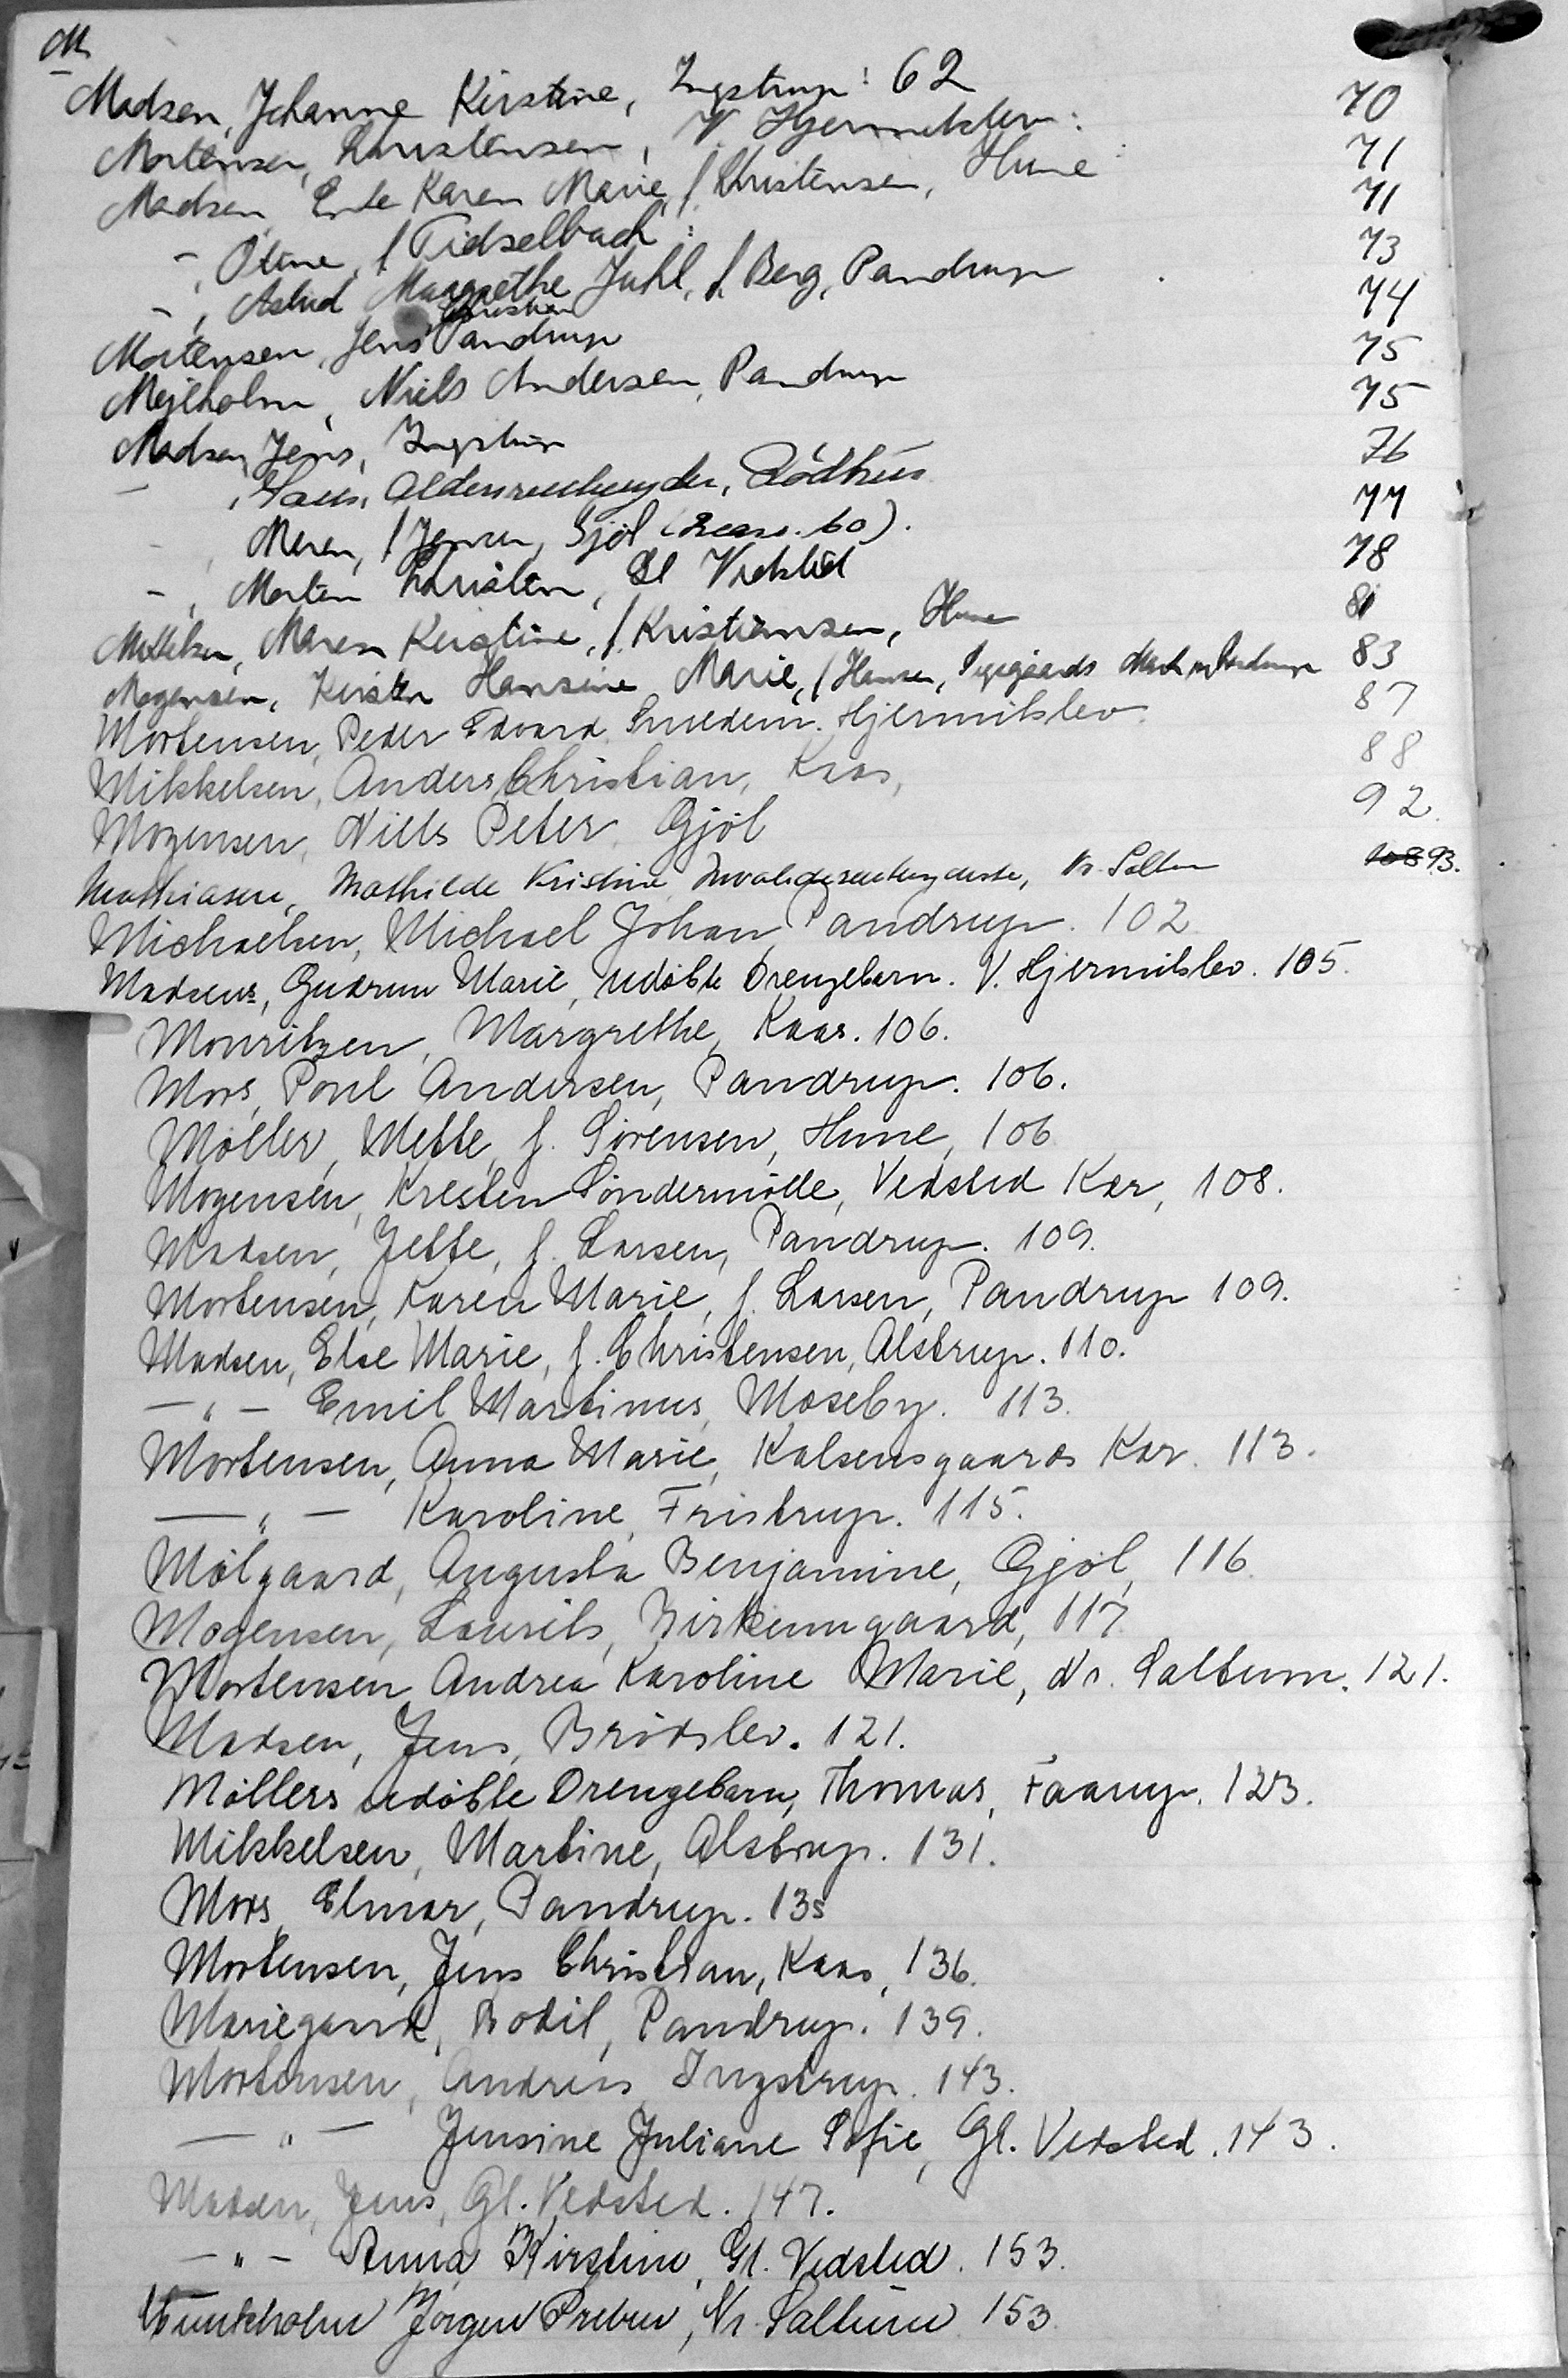 M
Madsen, Johanne Kirstine, Ingstrup: 62
Mortensen, Christensen, V Hjermitslev: 70
Madsen, Karen Marie, f. Christensen, Hune 71
- , Otine, f. Tidselbach: 71
- , Astrid Margrethe Juhl, f. Berg, Pandrup 73
Mortensen, Jens Christian Pandrup 74
Mejlholm, Niels Andersen, Pandrup 75
Madsen, Jens, Ingstrup 75
- , Aldersrentenyder, Rödhus 76
- , Maren, f. Jensen, Gjöl 77
- , Morten Christen, Gl Vedsted 78
Mikkelsen, Maren Kirstine, f. Kristiansen, Hune 81
Mogensen, Kirsten Hansine Marie, f. Hansen, Mark pr Pandrup 83
Mortensen, Peder Edvard, Smedem. Hjermitslev. 87
Mikkelsen, Anders Christian, Kaas, 88
Mogensen, Niels Peter, Gjöl 92.
Mathiasen, Mathilde Kristine, Invaliderentenyderske, Nr. Saltum 108 93.
Michaelsen, Michael Johan, Pandrup. 102
Madsens, Gudrun Marie, udöbte Drengebarn. V. Hjermitslev. 105.
Mouritzen, Margrethe, Kaas. 106.
Mors, Poul Andersen, Pandrup. 106.
Möller, Mette, f. Sörensen, Hune, 106
Mogensen, Kresten Söndermölle, Vedsted Kær, 108.
Madsen, Jette, f. Larsen, Pandrup. 109.
Mortensen, Karen Marie, f. Larsen, Pandrup 109.
Madsen, Else Marie, f. Christensen, Alstrup. 110.
- " - Emil Martinus, Moseby. 113.
Mortensen, Anna Marie, Kalsensgaards Kær. 113.
- " - Karoline, Fristrup. 115.
Mölgaard, Augusta Benjamine, Gjöl, 116
Mogensen, Laurits, Birkumgaard, 117
Mortensen Andrea Karoline Marie, Nr. Saltum. 121.
Madsen, Jens, Brödslev. 121.
Möllers udöbte Drengebarn, Thomas, Faarup. 123.
Mikkelsen, Martine, Alstrup. 131.
Mors, Elmar, Pandrup. 135
Mortensen, Jens Christian, Kaas, 136.
Mariegaard, Bodil, Pandrup. 139.
Mortensen, Andreas Ingstrup. 143.
- " - Jensine Juliane Sofie, Gl. Vedsted. 143.
Madsen, Jens, Gl. Vedsted. 147.
- " - Anna Kirstine, Gl. Vedsted. 153.
Munkholm Jörgen Preben, Nr. Saltum 153